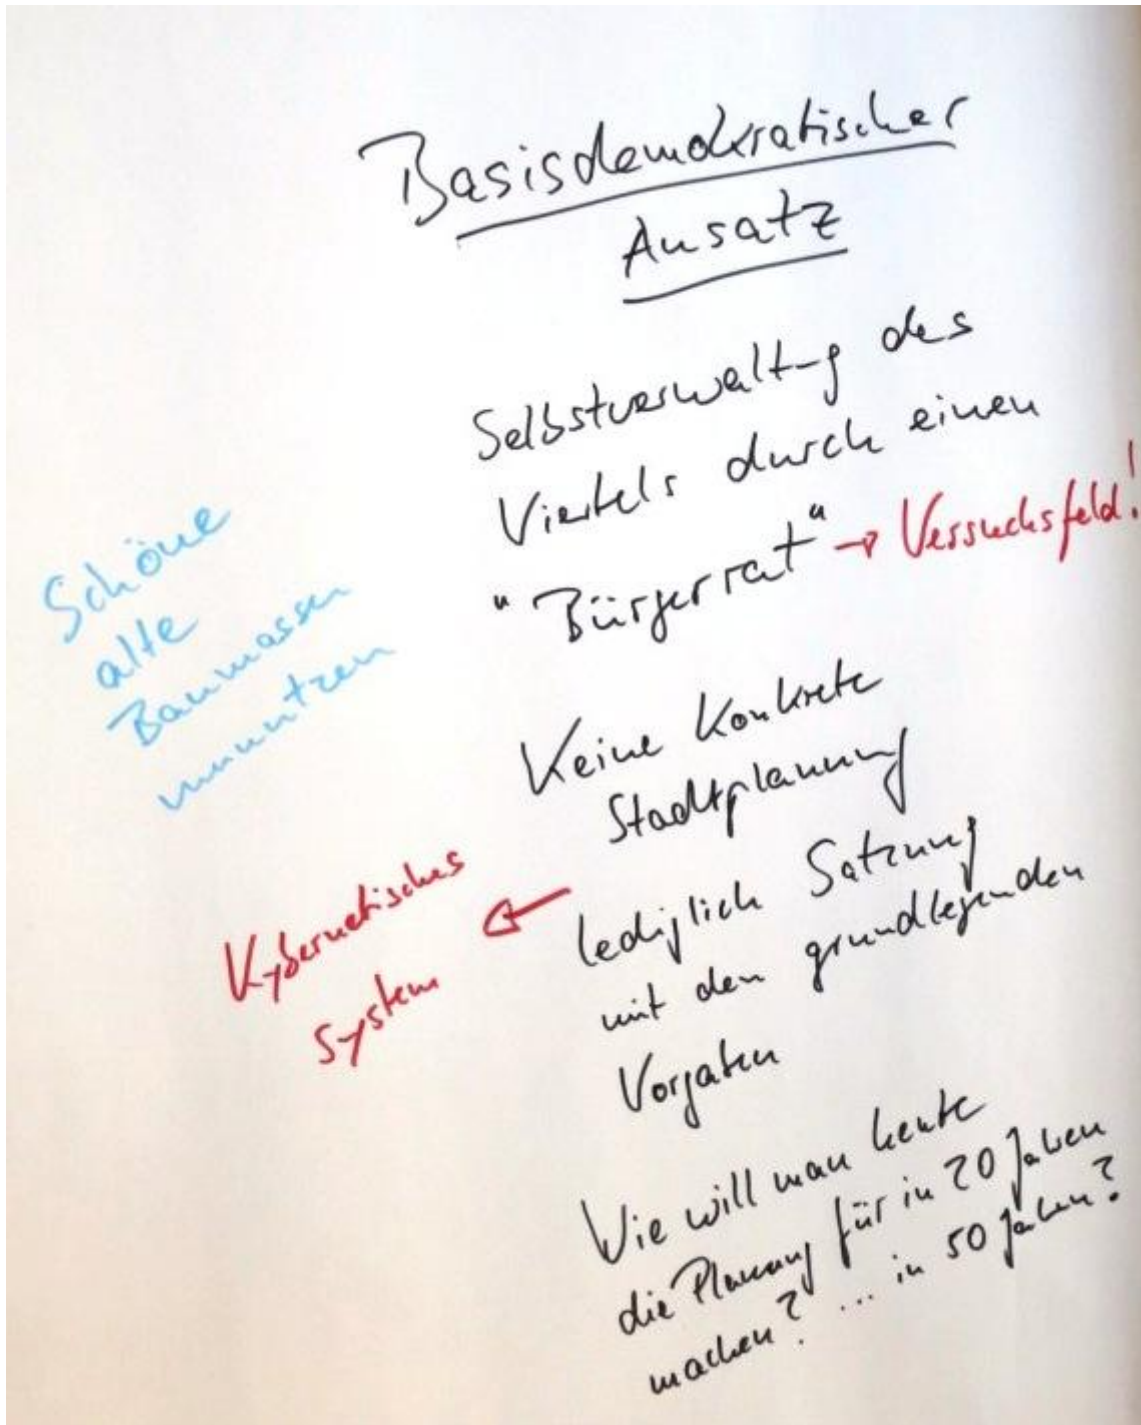 Basisdemokratischer
Ansatz
Selbstverwaltung des
Viertels durch einen
"Bürgerrat" → Versuchsfeld!
Schöne
alte
Baumassen
umnutzen
Keine Konkrete
Stadtplanung
lediglich Satzung
mit den grundlegenden
Vorgaben
← Kybernetisches
System
Wie will man heute
die Planung für in 20 Jahren
machen? ... in 50 Jahren?